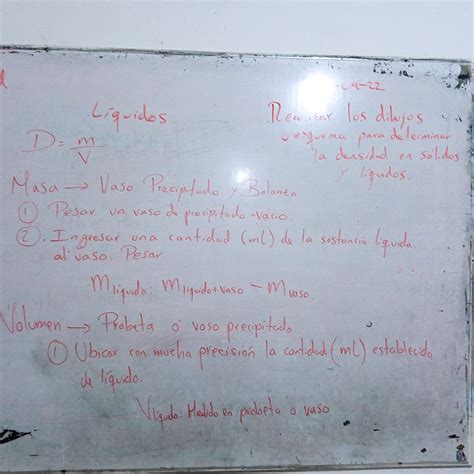 -09-22
Líquidos.
Realizar los dibujos
o esquema para determinar
la densidad en sólidos
y líquidos.
D = m
V
Masa → Vaso Precipitado y Balanza
① Pesar un vaso de precipitado vacio.
② Ingresar una cantidad (ml) de la sustancia líquida
al vaso. Pesar
m líquido: m líquido+vaso - m vaso.
Volumen → Probeta ó vaso precipitado
① Ubicar con mucha precisión la cantidad (ml) establecida
de líquido.
V líquido: Medido en probeta o vaso